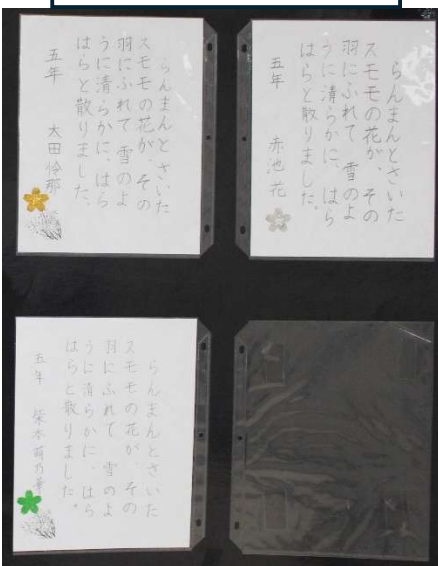 らんまんとさいた
スモモの花が、その
羽にふれて 雪のよ
うに清らかに、はら
はらと散りました。
五年 赤池 花
らんまんとさいた
スモモの花が、その
羽にふれて 雪のよ
うに清らかに、はら
はらと散りました。
五年 太田怜那
らんまんとさいた
スモモの花が、その
羽にふれて 雪のよ
うに清らかに、はら
はらと散りました。
五年